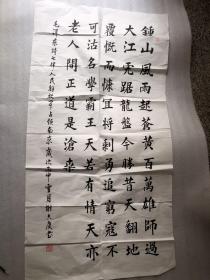 鍾山風雨起蒼黃百萬雄師過
大江虎踞龍盤今勝昔天翻地
覆慨而慷宜將剩勇追窮寇不
可沽名學霸王天若有情天亦
老人間正道是滄桑
毛澤東詩七律人民解放軍占領南京歲次